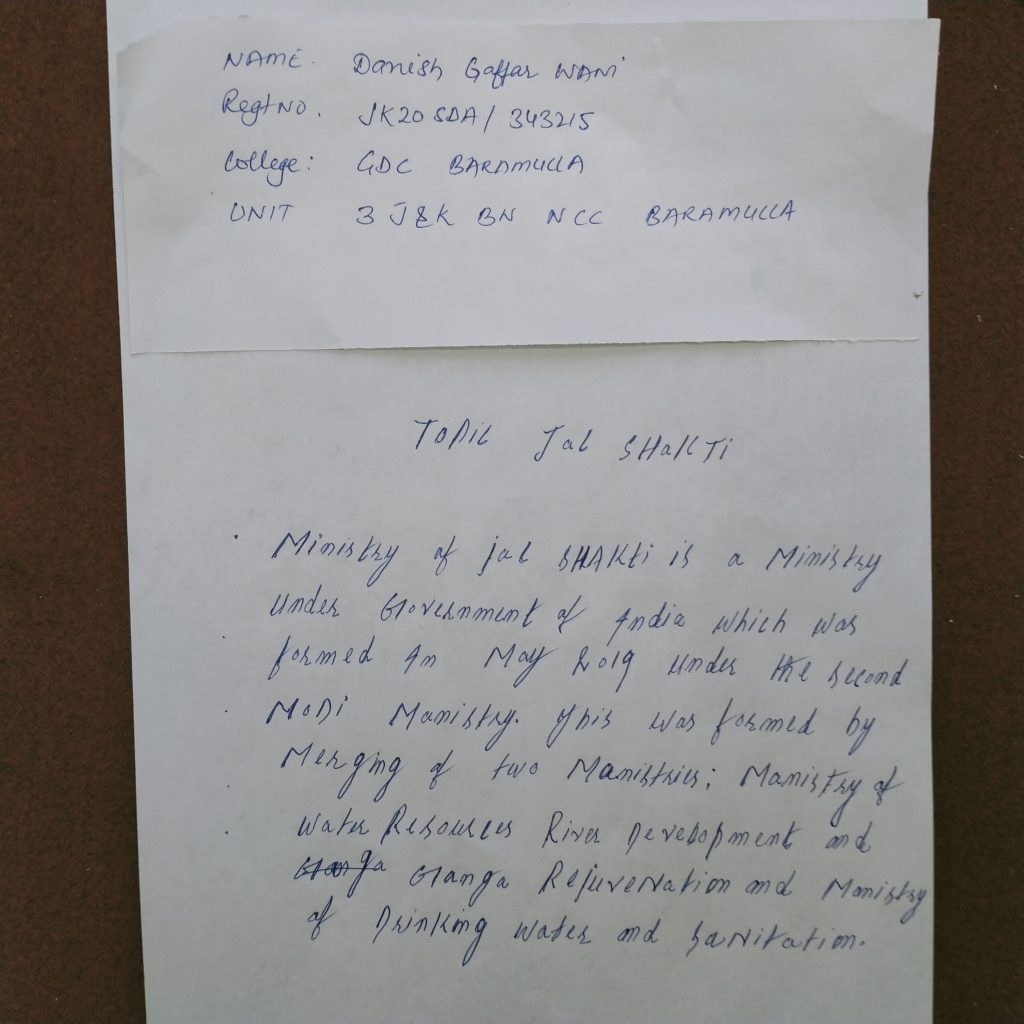 NAME. Danish Gaffar WANI
Regt NO. JK20 SDA/ 343215
College: GDC BARAMULLA
UNIT 3 J&K BN NCC BARAMULLA
Topic Jal SHaKTi
Ministry of jal SHAKti is a Ministry
under Government of India which was
formed In May 2019 under the second
MoDi Manistry. This was formed by
Merging of two Manistries; Manistry of
Water Resources River Development and
Ganga Ganga Rejuvenation and Manistry
of Drinking water and sanitation.